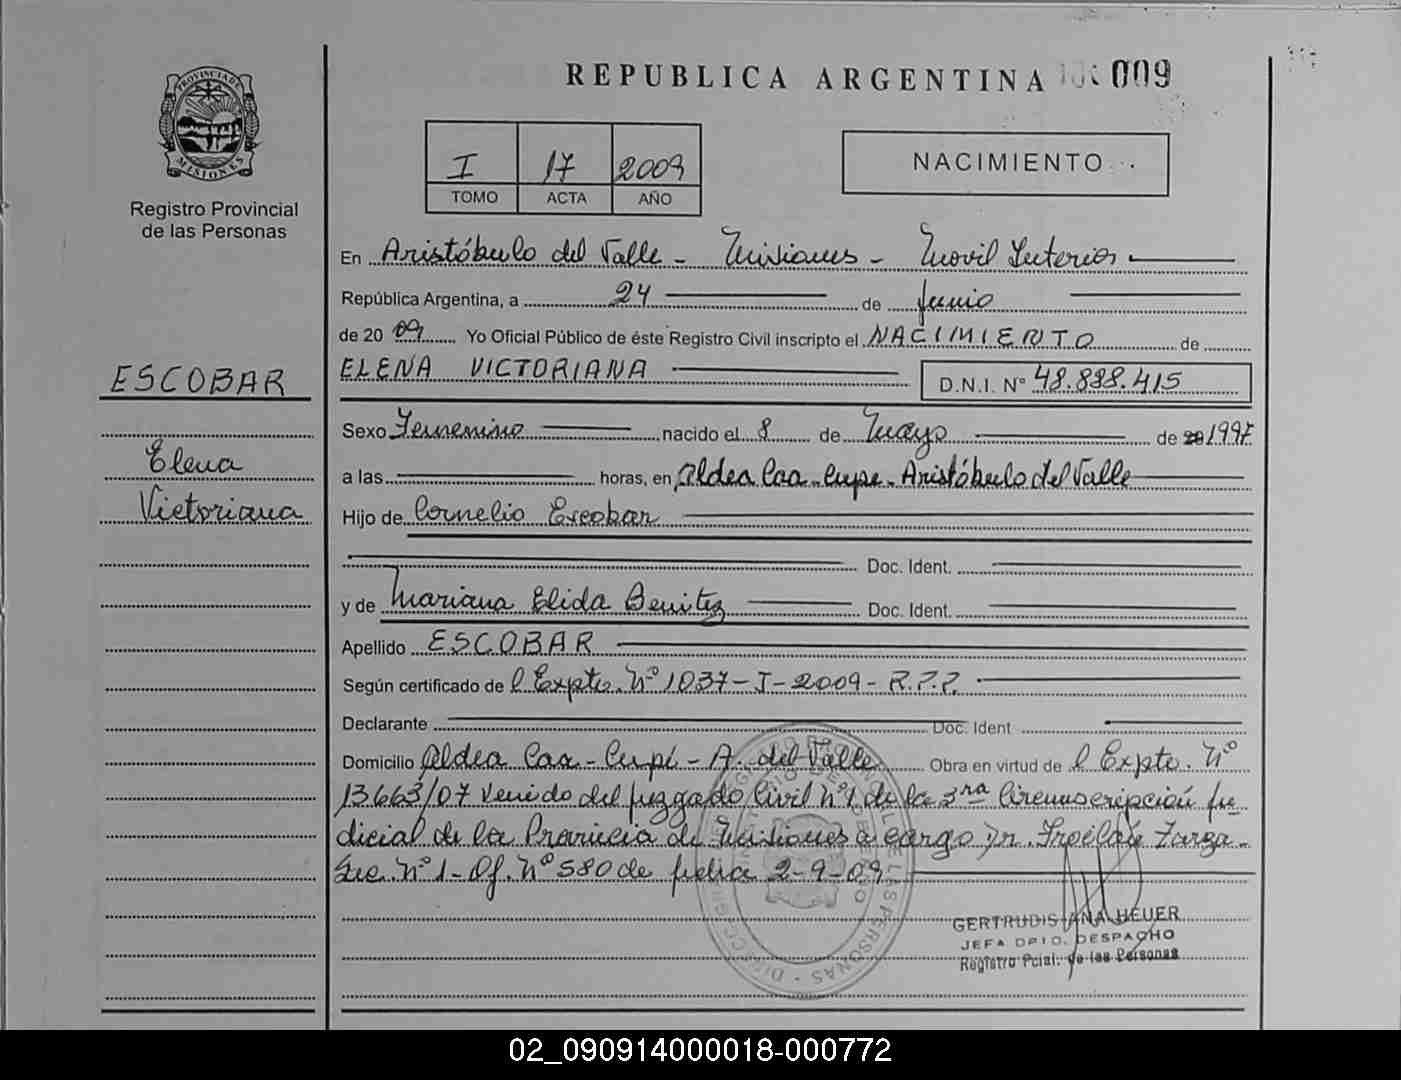 REPUBLICA ARGENTINA 009
PROVINCIA DE
MISIONES
Registro Provincial
de las Personas
I 17 2009
TOMO ACTA AÑO
NACIMIENTO
En Aristóbulo del Valle - Misiones - Movil Interior
República Argentina, a 24 de Junio
de 20 09 Yo Oficial Público de éste Registro Civil inscripto el NACIMIENTO de
ELENA VICTORIANA D.N.I. Nº 48.888.415
ESCOBAR
Elena
Victoriana
Sexo Femenino nacido el 8 de Mayo de 1997
a las horas, en Aldea Caa-Cupe-Aristóbulo del Valle
Hijo de Cornelio Escobar
Doc. Ident.
y de Mariana Elida Benitez Doc. Ident.
Apellido ESCOBAR
Según certificado de l Expte. Nº 1037-I-2009-R.P.P.
Declarante Doc. Ident
Domicilio Aldea Caa-Cupé-A. del Valle Obra en virtud de l Expte. Nº
13663/07 venido del juzgado Civil Nº1 de la 3ra Circunscripción ju-
dicial de la Provincia de Misiones a cargo Dr. Froilán Zarza-
Sec. Nº 1-Of. Nº 580 de fecha 2-9-09
GERTRUDIS ANA HEUER
JEFA DPTO. DESPACHO
Registro Pcial. de las Personas
02_090914000018-000772